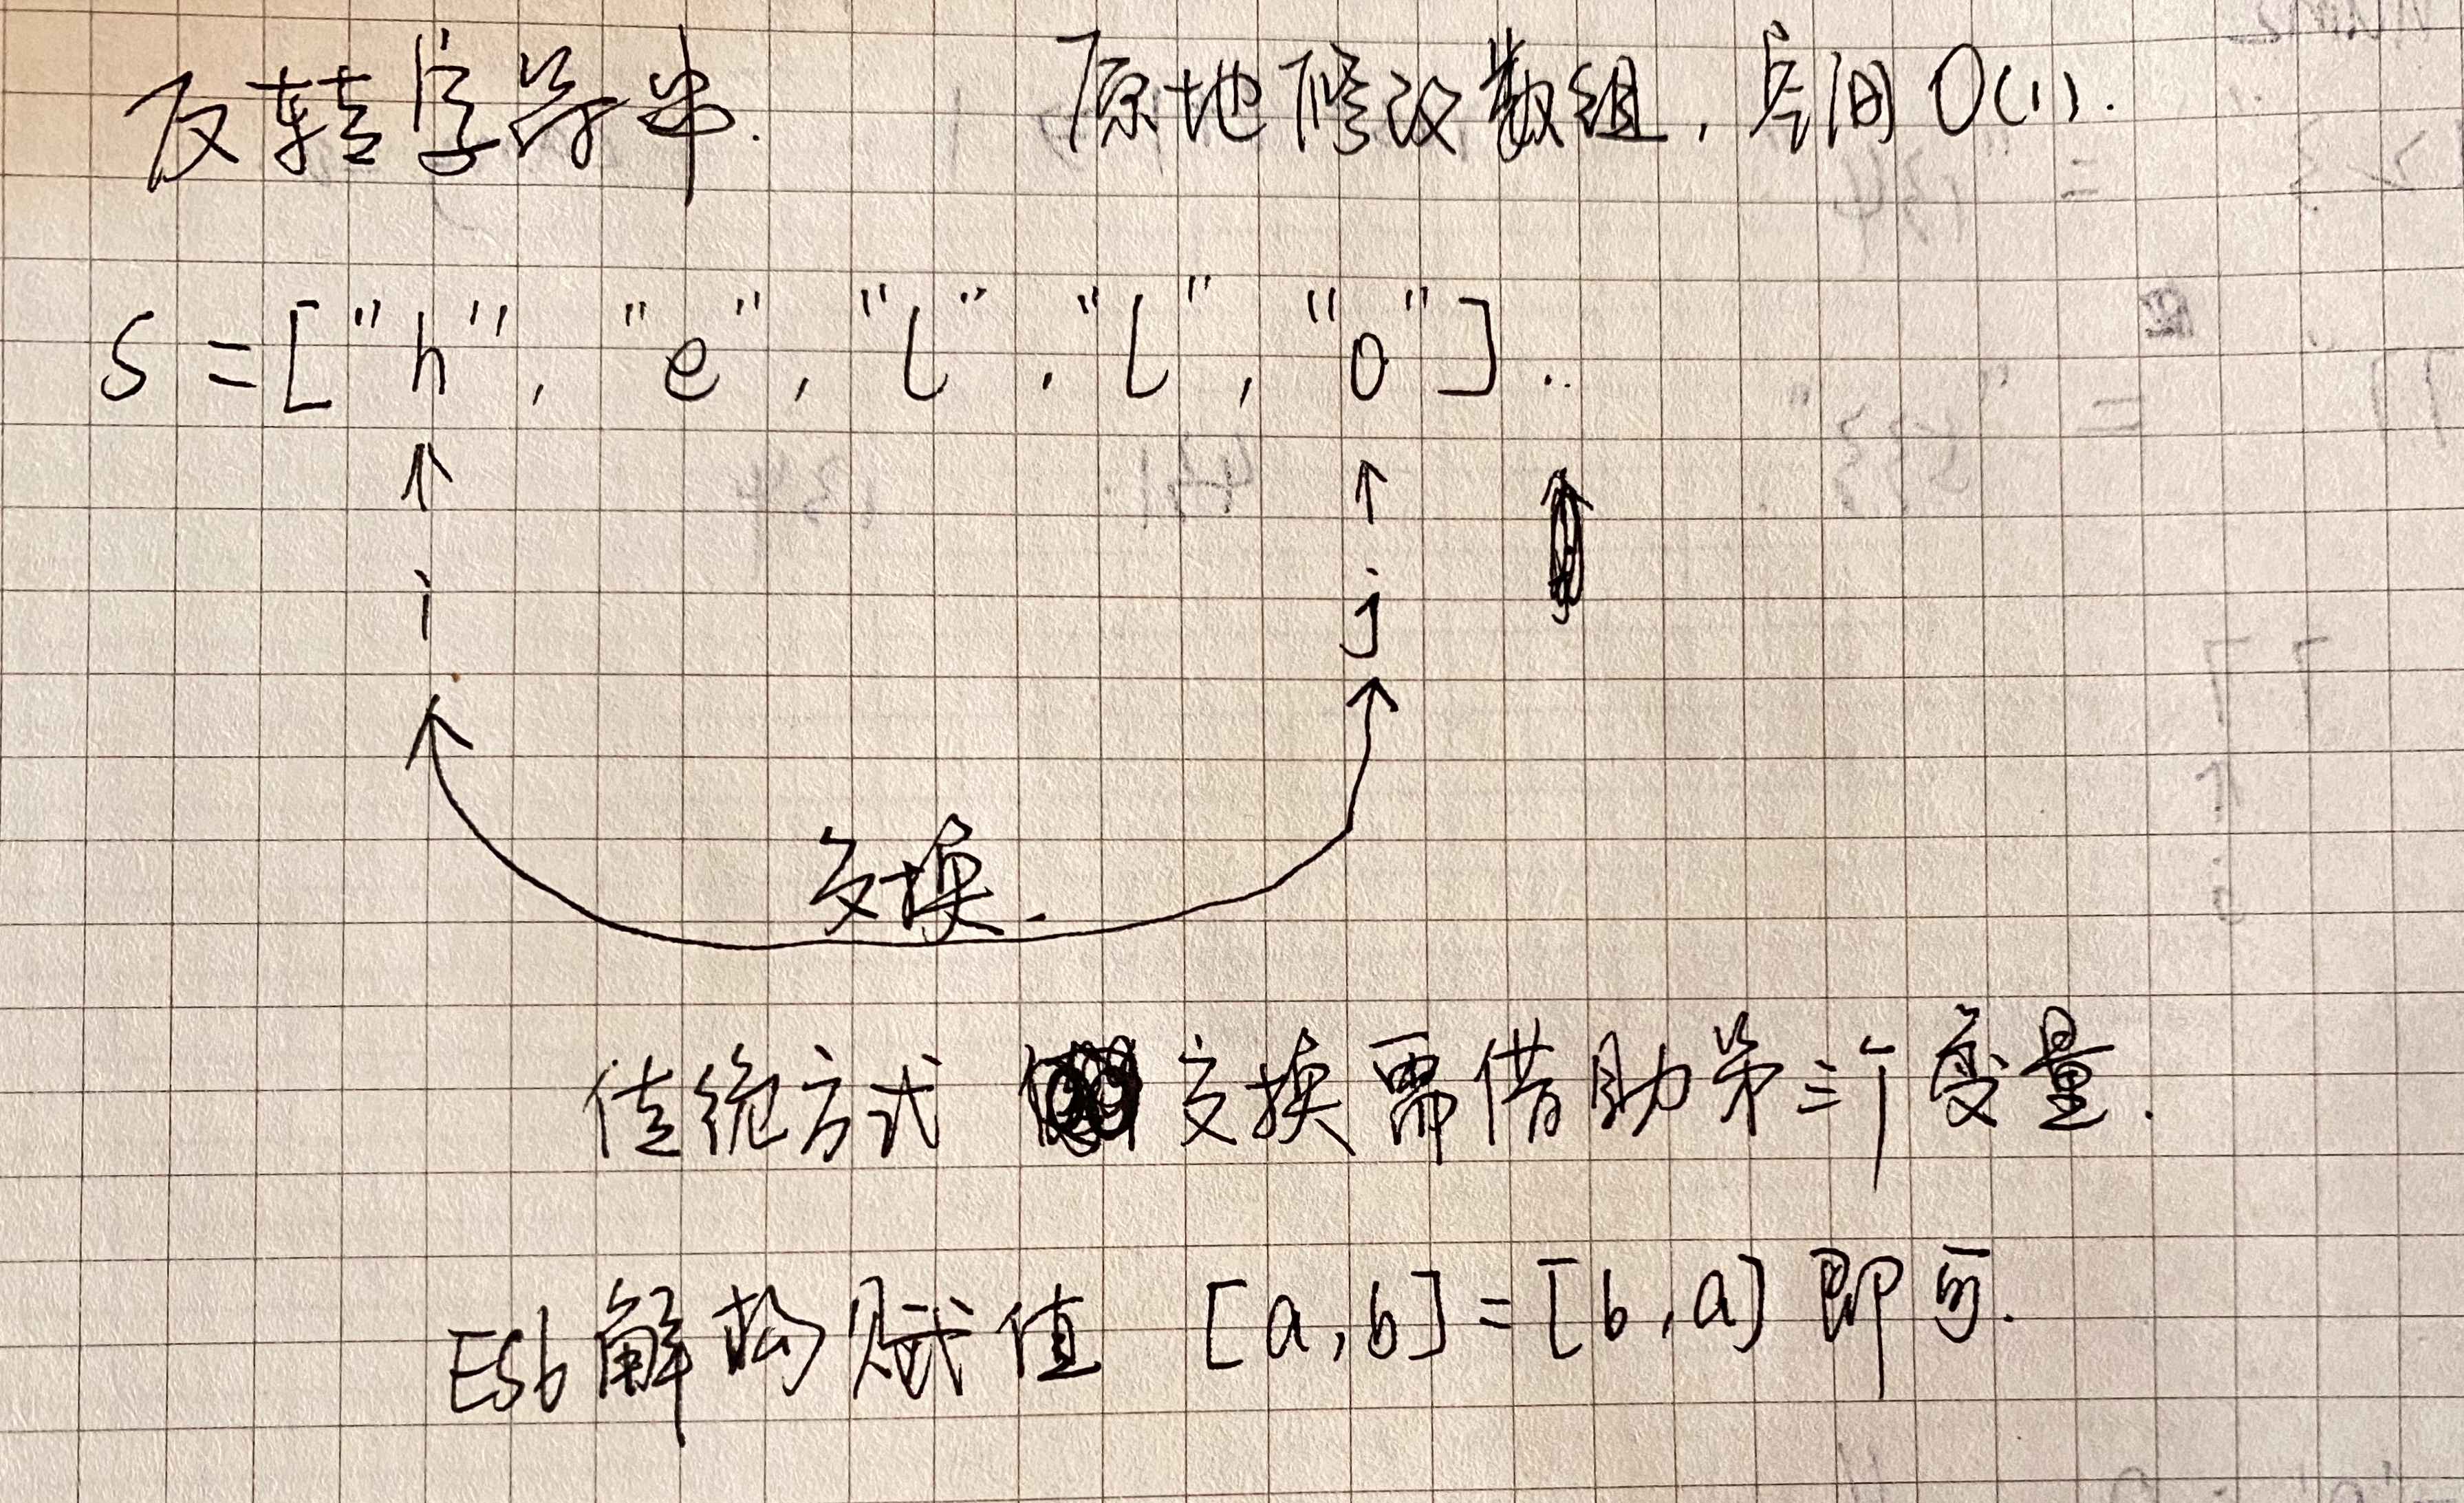 反转字符串. 原地修改数组, 空间 O(1).
S = ["h", "e", "l", "l", "o"] ..
i j
交换.
传统方式 交换需借助第三个变量.
ES6解构赋值 [a,b] = [b,a] 即可.